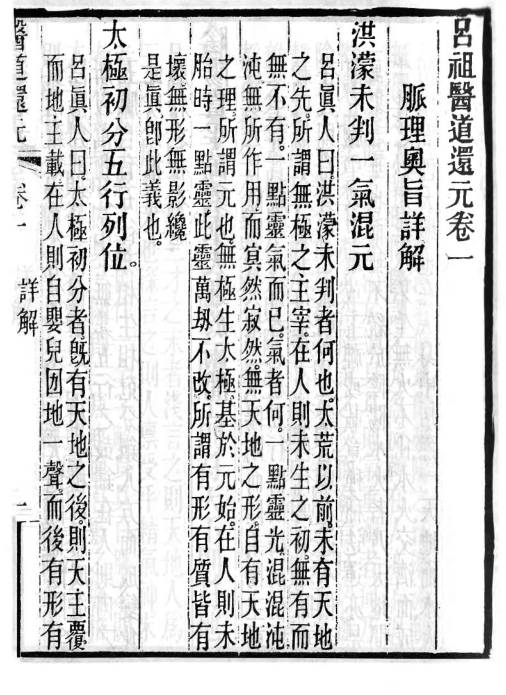 呂祖醫道還元卷一
脈理奧旨詳解
洪濛未判一氣混元
呂眞人曰洪濛未判者何也太荒以前未有天地
之先所謂無極之主宰在人則未生之初無有而
無不有一點靈氣而已氣者何一點靈光混混沌
沌無所作用而寂然寂然無天地之形自有天地
之理所謂元也無極生太極基於元始在人則未
胎時一點靈此靈萬劫不改所謂有形有質皆有
壞無形無影纔
是眞卽此義也。
太極初分五行列位。
呂眞人曰太極初分者旣有天地之後則天主覆
而地主載在人則自嬰兒囡地一聲而後有形有
醫道還元 卷一 詳解 二